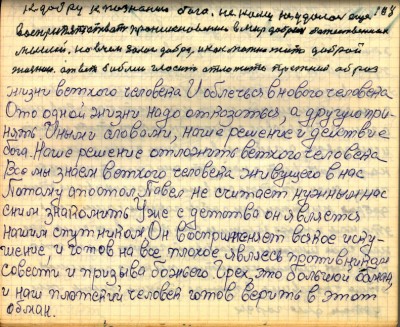 недобру к познанию бога. не кому не удалось еще 188
воспрепятствовать проникновению в мир добрых божественных
мыслей. но в чем закон добра, и как можно жить доброй
жизни. ответ библии гласит отложить прежний образ
жизни ветхого человека И облечься в нового человека
Ото одной жизни надо отказаться, а другую при-
нять. Иными словами, наше решение и действие
бога. Наше решение отложить ветхого человека
Все мы знаем ветхого человека живущего в нас
Потому апостол Павел не считает нужным нас
с ним знакомить Уже с детства он является
нашим спутником. Он воспринимает всякое иску-
шение, и готов на все плохое являясь противником
совести и призыва божьего. Грех, это большой обман,
и наш плотский человек готов верить в этот
обман.